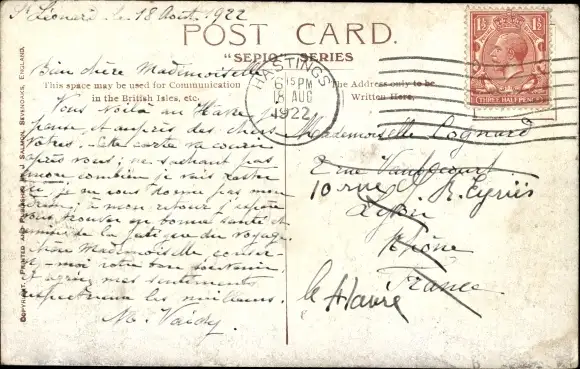 St Léonard le 18 Août 1922
POST CARD.
"SEPIO" SERIES
This space may be used for Communication
in the British Isles, etc.
The Address only to be
Written Here.
HASTINGS
6 15 PM
18 AUG
1922
THREE HALF PENCE
Bien chère Mademoiselle
Vous voilà au Havre
et auprès des chers
vôtres. cette carte va courir
après vous; ne sachant pas
combien je vais rester
ici je ne vous donne pas mon
à mon retour j'espère
vous trouver en bonne santé
remise de la fatigue du voyage
chère Mademoiselle
moi votre bon souvenir
et agréez mes sentements
les meilleurs.
M. Vaidy
Mademoiselle Cognard
2 rue Vaubecourt
10 rue J. B. Eyriès
Lyon
Rhône
France
le Havre
COPYRIGHT. PRINTED AND PUBLISHED BY J. SALMON, SEVENOAKS, ENGLAND.